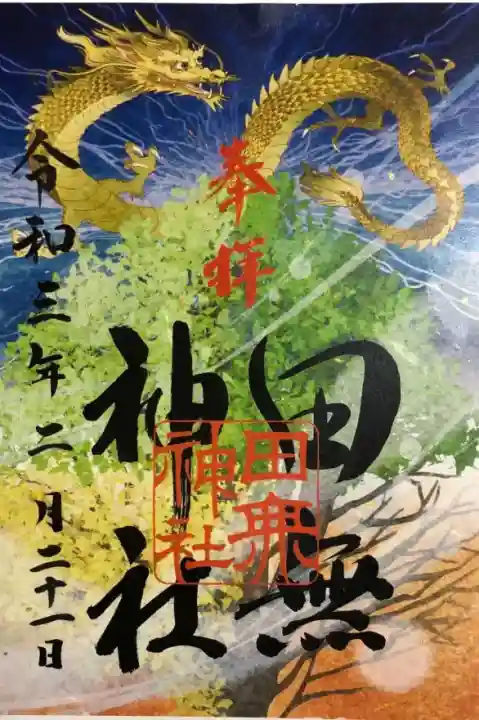 奉拝
田無
神社
田無
神社
令和三年二月二十一日